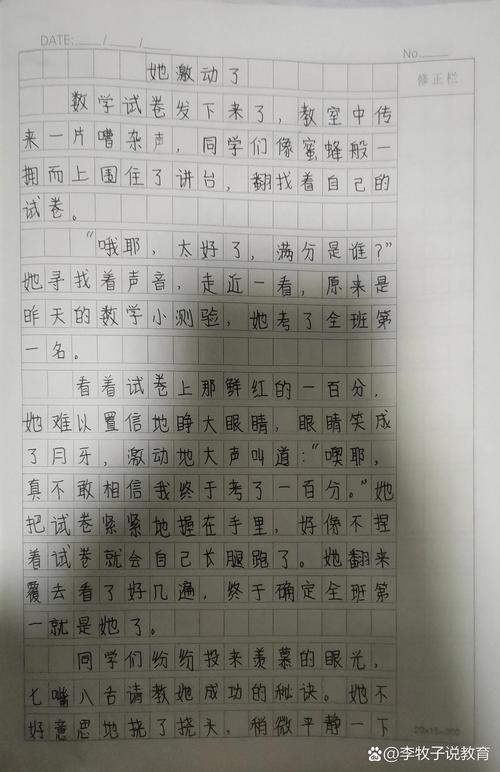 DATE: / /
No.
修正栏
她激动了
数学试卷发下来了，教室中传
来一片嘈杂声，同学们像蜜蜂般一
拥而上围住了讲台，翻找着自己的
试卷。
“哦耶，太好了，满分是谁？”
她寻找着声音，走近一看，原来是
昨天的数学小测验，她考了全班第
一名。
看着试卷上那鲜红的一百分，
她难以置信地睁大眼睛，眼睛笑成
了月牙，激动地大声叫道：“噢耶，
真不敢相信我终于考了一百分。”她
把试卷紧紧地握在手里，好像不捏
着试卷就会自己长腿跑了。她翻来
覆去看了好几遍，终于确定全班第
一就是她了。
同学们纷纷投来羡慕的眼光，
七嘴八舌请教她成功的秘诀。她不
好意思地挠了挠头，稍微平静一下
20×15=300
@李牧子说教育